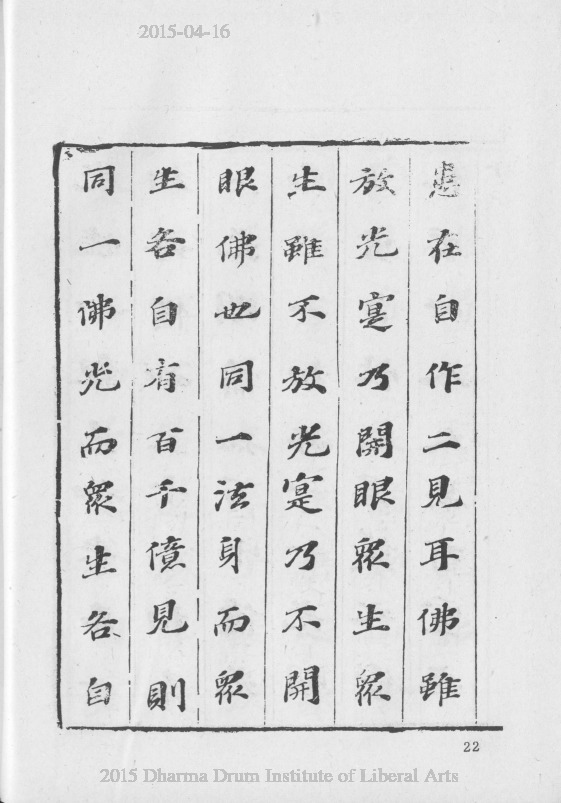 2015-04-16
患在自作二見耳佛雖
放光寔乃開眼眾生眾
生雖不放光寔乃不開
眼佛也同一法身而眾
生各自有百千億見則
同一佛光而眾生各自
22
2015 Dharma Drum Institute of Liberal Arts